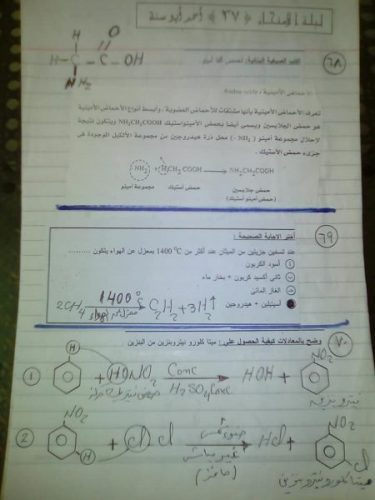 ليلة الامتحان (٣٧) أحمد أبو سنة
٦٨
اكتب الصيغة البنائية: لحمض ألفا أمينو
H O
H - C - C - OH
NH2
الأحماض الأمينية
تعرف الأحماض الأمينية بأنها مشتقات للأحماض العضوية، وأبسط أنواع الأحماض الأمينية
هو حمض الجلايسين ويسمى أيضا بحمض الأمينوأستيك NH2CH2COOH ويتكون نتيجة
لإحلال مجموعة أمينو (NH2 -) محل ذرة هيدروجين من مجموعة الألكيل الموجودة فى
جزىء حمض الأستيك.
NH2 + H CH2 COOH → NH2CH2COOH
مجموعة أمينو حمض أستيك حمض جلايسين
(حمض أمينو أستيك)
٦٩
أختر الاجابة الصحيحة :
عند تسخين جزيئين من الميثان عند أكثر من 1400 °C بمعزل عن الهواء يتكون ........
أسود الكربون
ثانى أكسيد كربون + بخار ماء
الغاز المائى
أسيتيلين + هيدروجين
2CH4 1400°C C2H2 + 3H2
٧٠
وضح بالمعادلات كيفية الحصول علي : ميتا كلورو نيتروبنزين من البنزين
1 H + HO NO2 Conc H2SO4 Conc HOH + NO2
حمض نيتريك مركز نيتروبنزين
2 NO2 H + Cl Cl HCl + NO2 Cl
ضوء شمس
غير مباشر
(حافز)
ميتا كلورو نيتروبنزين